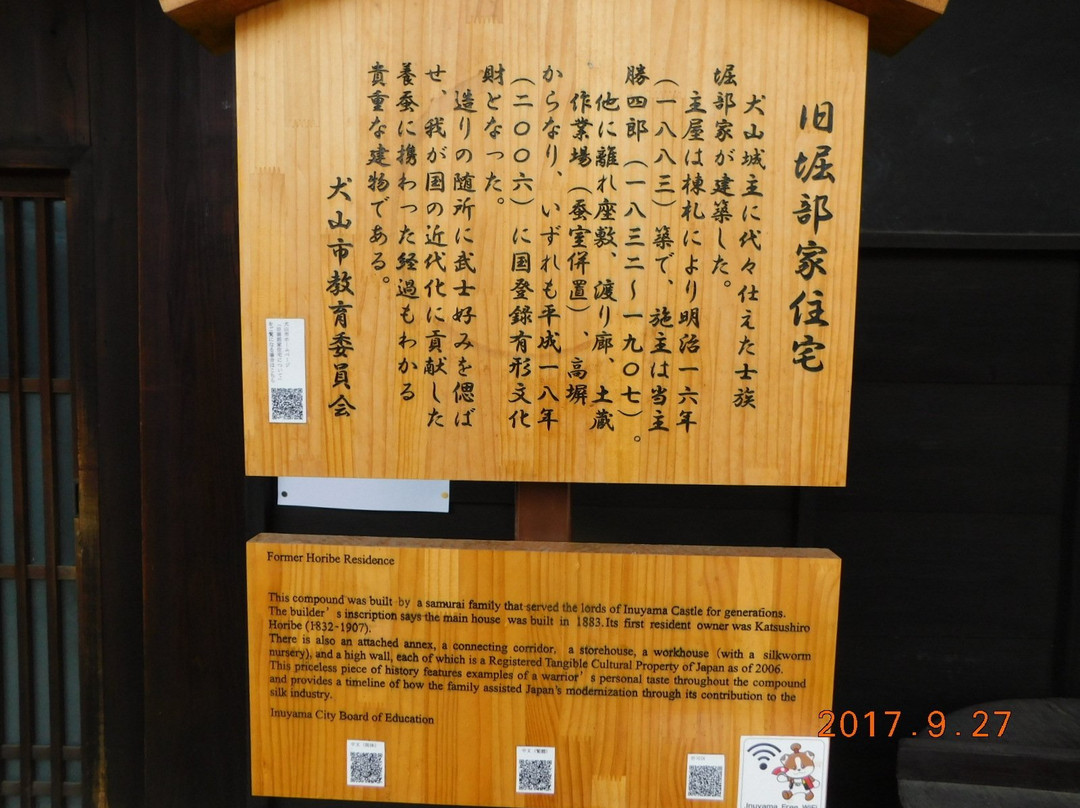 旧堀部家住宅
犬山城主に代々仕えた士族
堀部家が建築した。
主屋は棟札により明治一六年
(一八八三)築で、施主は当主
勝四郎(一八三二〜一九〇七)。
他に離れ座敷、渡り廊、土蔵
作業場(蚕室併置)、高塀
からなり、いずれも平成一八年
(二〇〇六)に国登録有形文化
財となった。
造りの随所に武士好みを偲ば
せ、我が国の近代化に貢献した
養蚕に携わった経過もわかる
貴重な建物である。
犬山市教育委員会
Former Horibe Residence
This compound was built by a samurai family that served the lords of Inuyama Castle for generations.
The builder's inscription says the main house was built in 1883. Its first resident owner was Katsushiro
Horibe (1832-1907).
There is also an attached annex, a connecting corridor, a storehouse, a workhouse (with a silkworm
nursery), and a high wall, each of which is a Registered Tangible Cultural Property of Japan as of 2006.
This priceless piece of history features examples of a warrior's personal taste throughout the compound
and provides a timeline of how the family assisted Japan's modernization through its contribution to the
silk industry.
Inuyama City Board of Education
Inuyama Free WiFi
2017.9.27